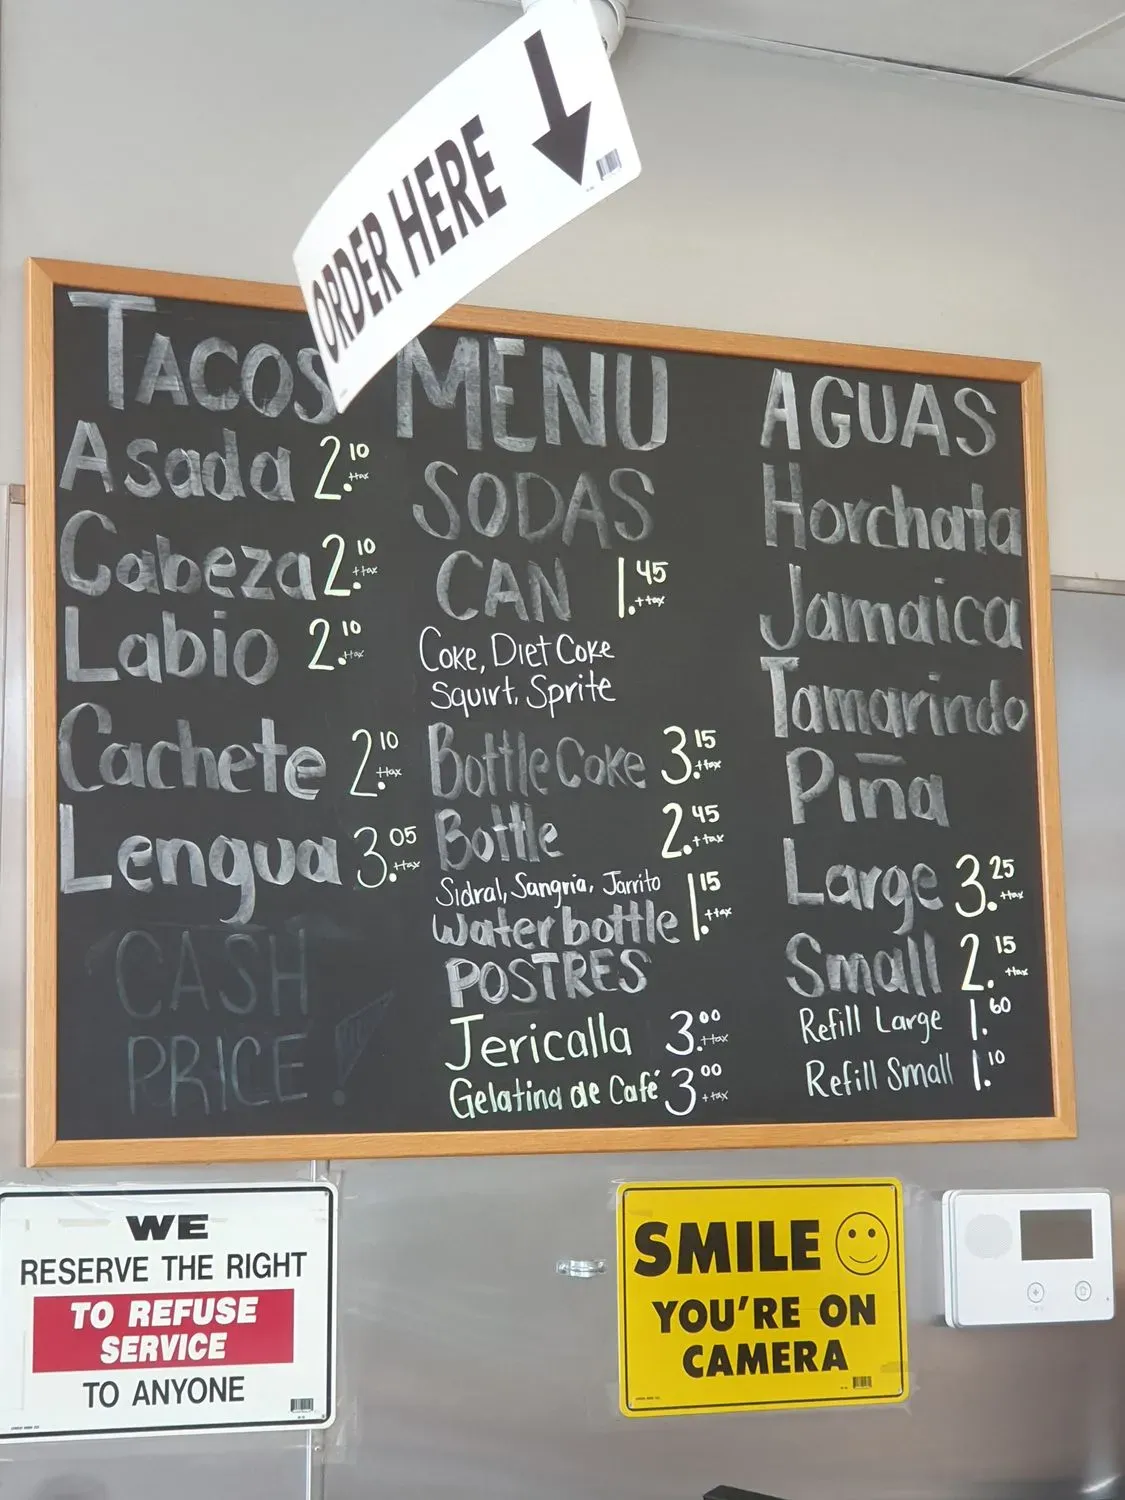 ORDER HERE
TACOS MENU
Asada 2.10 +tax
Cabeza 2.10 +tax
Labio 2.10 +tax
Cachete 2.10 +tax
Lengua 3.05 +tax
CASH
PRICE!
SODAS
CAN 1.45 +tax
Coke, Diet Coke
Squirt, Sprite
Bottle Coke 3.15 +tax
Bottle 2.45 +tax
Sidral, Sangria, Jarrito
Water bottle 1.15 +tax
POSTRES
Jericalla 3.00 +tax
Gelatina de Café 3.00 +tax
AGUAS
Horchata
Jamaica
Tamarindo
Piña
Large 3.25 +tax
Small 2.15 +tax
Refill Large 1.60
Refill Small 1.10
WE
RESERVE THE RIGHT
TO REFUSE
SERVICE
TO ANYONE
SMILE
YOU'RE ON
CAMERA